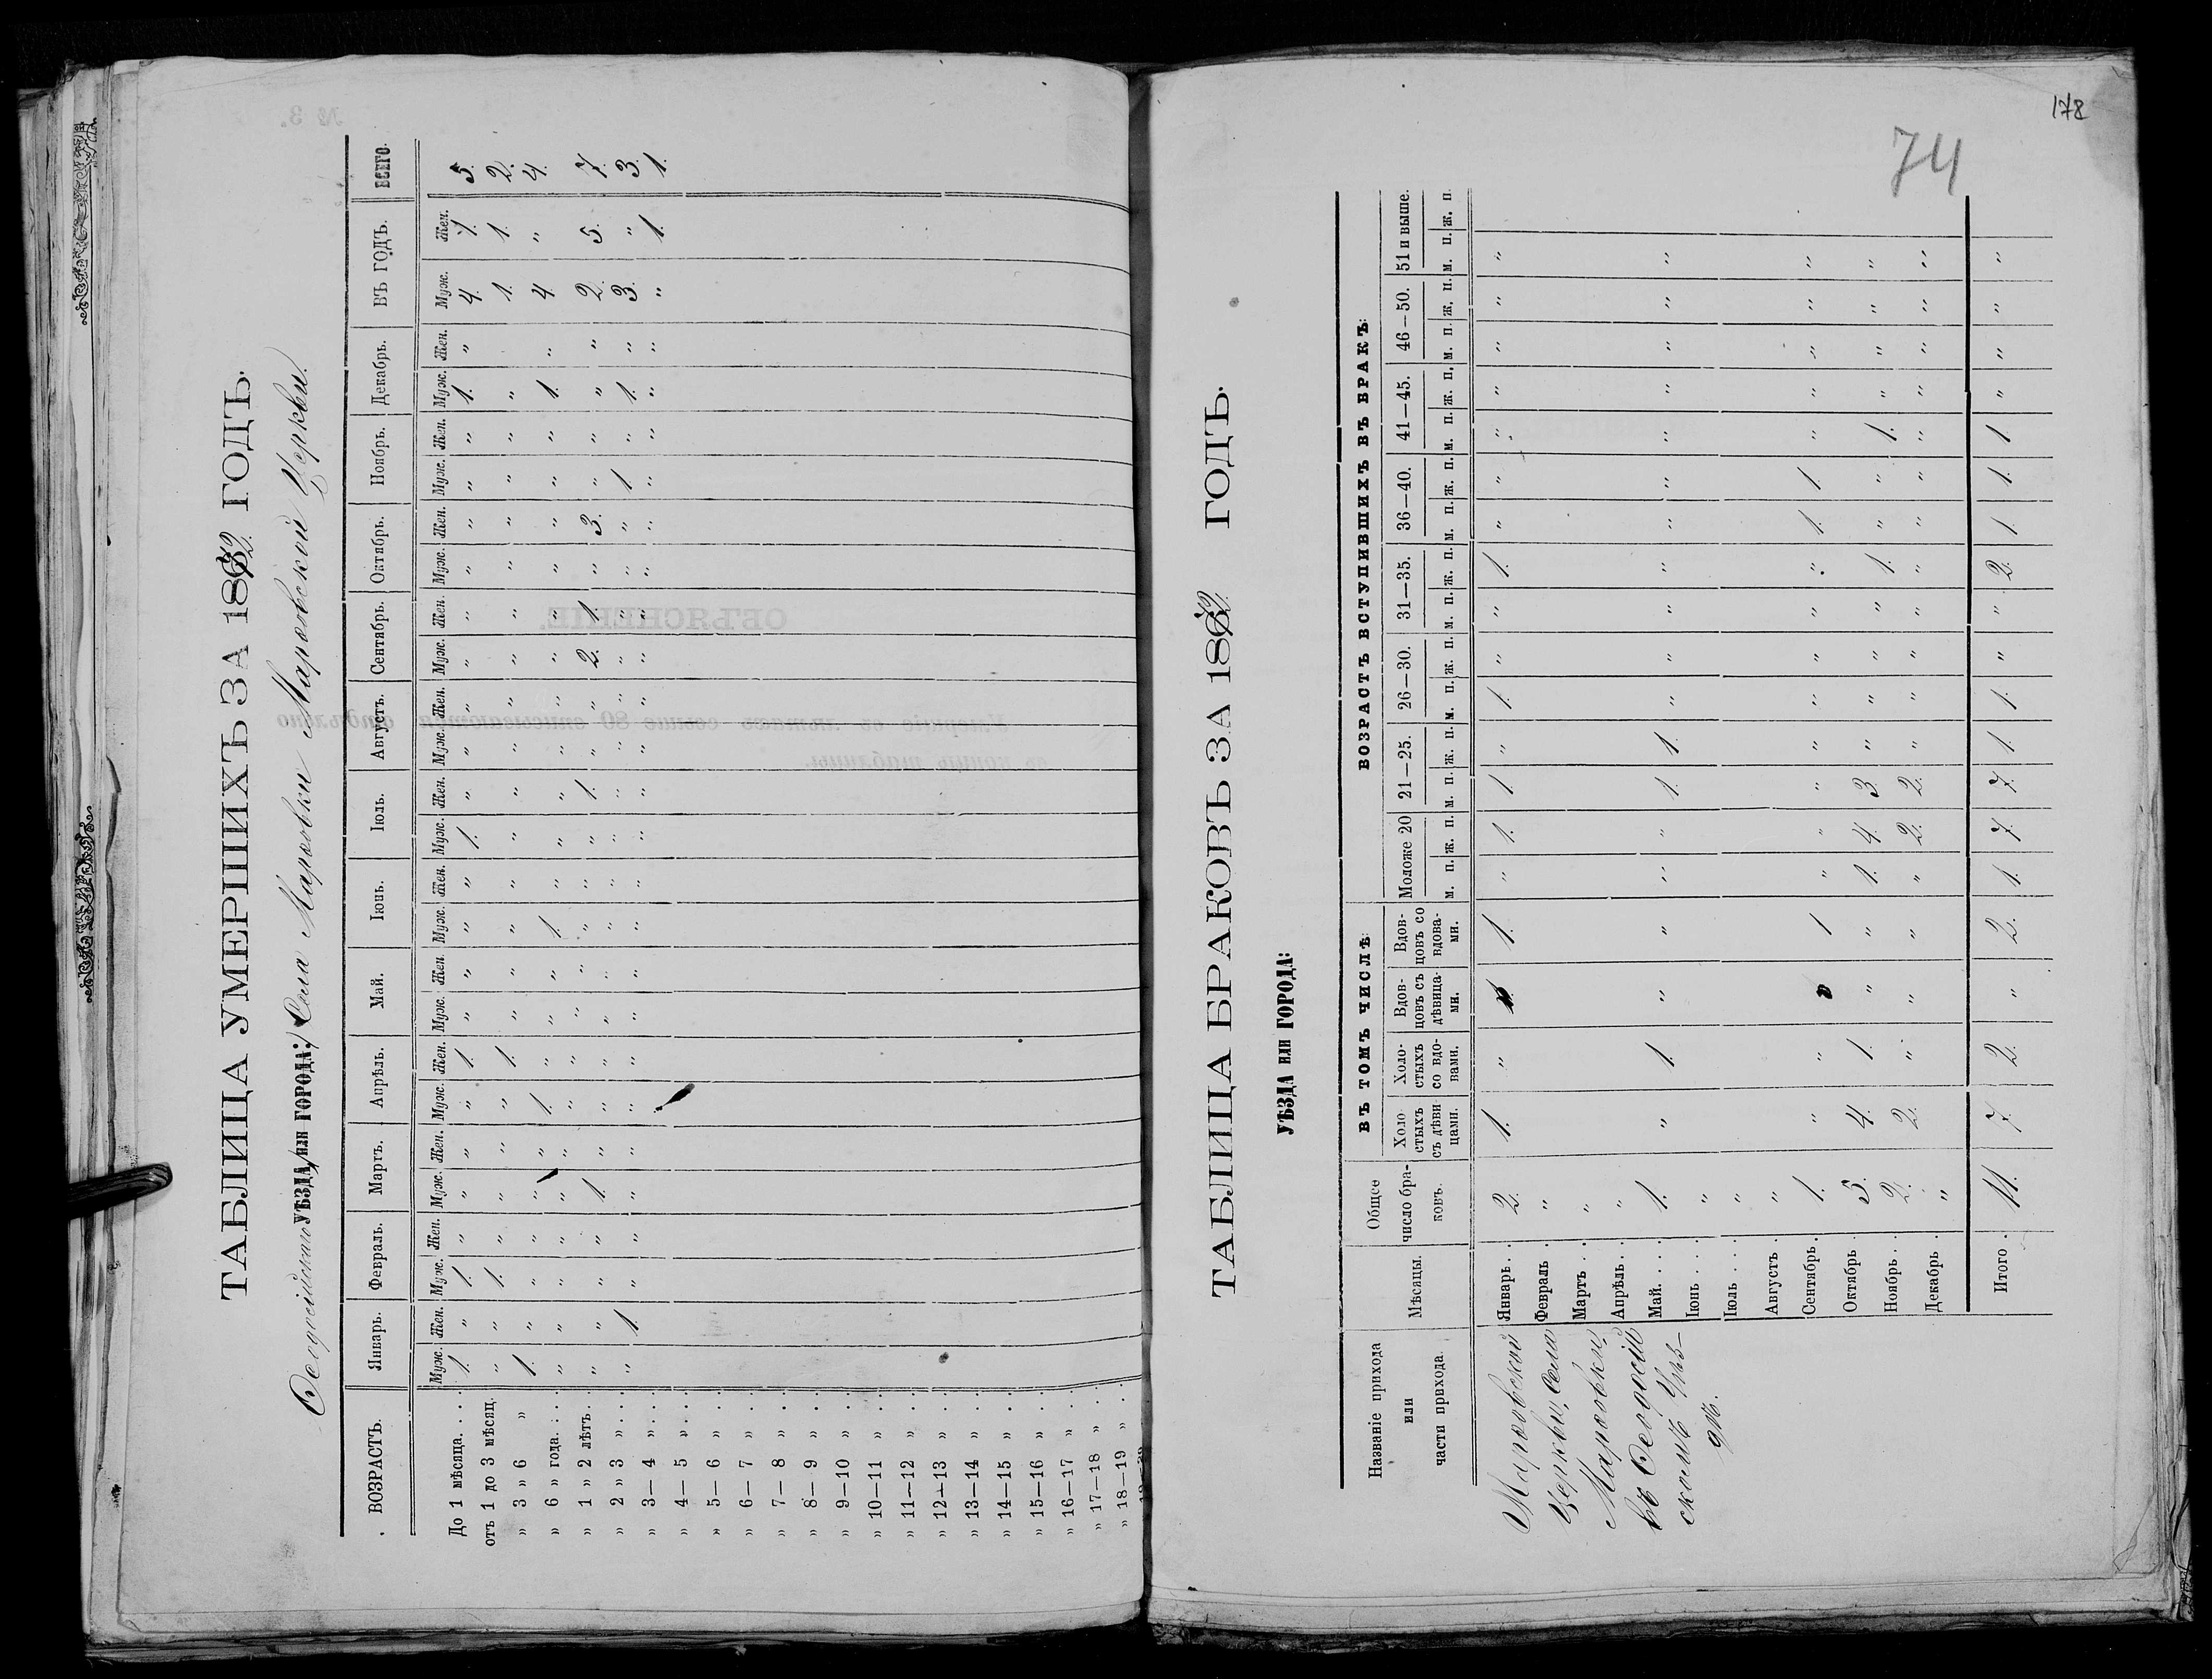 178
74
ТАБЛИЦА УМЕРШИХЪ ЗА 1872 ГОДЪ.
Ѳеодосійскаго УѢЗДА, ИЛИ ГОРОДА: Села Марфовки Марфовской Церкви.
ВОЗРАСТЪ. Январь. Февраль. Мартъ. Апрѣль. Май. Іюнь. Іюль. Августъ. Сентябрь. Октябрь. Ноябрь. Декабрь. ВЪ ГОДЪ. ВСЕГО.
Муж. Жен. Муж. Жен. Муж. Жен. Муж. Жен. Муж. Жен. Муж. Жен. Муж. Жен. Муж. Жен. Муж. Жен. Муж. Жен. Муж. Жен. Муж. Жен. Муж. Жен.
До 1 мѣсяца. . . . 1. " 1. " " " " 1. " " " " 1. " " " " " " " " " 1. " 4. 1. 5.
отъ 1 до 3 мѣсяц. " " 1. " " " " 1. " " " " " " " " " " " " " " " 1. 1. 2.
" 3 " 6 " 1. " " " " " 1. " " " 1. " " " " " " " " " " " 1. " 4. " 4.
" 6 " года. . . . " " " " " " " " " "
" 1 " 2 лѣтъ. . " " " " 1. " " " " " " " " 1. " " 2. 1. " 3. " " " " 2. 5. 7.
" 2 " 3 " . . . " 1. " " " " " " " " " " " " " " " " " " 1 " 1. " 3. " 3.
" 3— 4 " . . . " 1. 1.
" 4— 5 " . . .
" 5— 6 " . .
" 6— 7 " . .
" 7— 8 " . .
" 8— 9 " . .
" 9—10 " . .
" 10—11 " . .
" 11—12 " . .
" 12—13 " . .
" 13—14 " . .
" 14—15 " . .
" 15—16 " . .
" 16—17 " . .
" 17—18 " . .
" 18—19 " . .
ТАБЛИЦА БРАКОВЪ ЗА 1872 ГОДЪ.
УѢЗДА ИЛИ ГОРОДА:
Названіе прихода или части прихода. Мѣсяцы. Общее число браковъ. ВЪ ТОМЪ ЧИСЛѢ: ВОЗРАСТЪ ВСТУПИВШИХЪ ВЪ БРАКЪ:
Холостыхъ съ дѣвицами. Холостыхъ со вдовами. Вдовцовъ съ дѣвицами. Вдовцовъ со вдовами. Моложе 20 21—25. 26—30. 31—35. 36—40. 41—45. 46—50. 51 и выше.
м. п. ж. п. м. п. ж. п. м. п. ж. п. м. п. ж. п. м. п. ж. п. м. п. ж. п. м. п. ж. п. м. п. ж. п.
Марфовской
Церкви, Села
Марфовки,
въ Ѳеодосій
скомъ Уѣз-
дѣ.
Январь. . 2. 1. " 1. " 1. 1 " 1. " " 1. " " " " " " "
Февраль . "
Мартъ . . "
Апрѣль. . "
Май. . . . 1. " 1. " " " " 1. 1. " " " " " " " " " " "
Іюнь . . . "
Іюль . . . "
Августъ . "
Сентябрь . 1. " " 1 " " " " " " " " 1. 1 " " " " "
Октябрь . 5. 4. 1. " " 1. 4. 3. " " " " 1. " " 1. " " " "
Ноябрь . . 2. 2. " " " " 2. 2. " " " " " " " " " " " "
Декабрь . "
Итого . 11. 7. 2. " 2. 1. 7. 7. 1. 1. " " 2. 1. 1. 1. " " " "